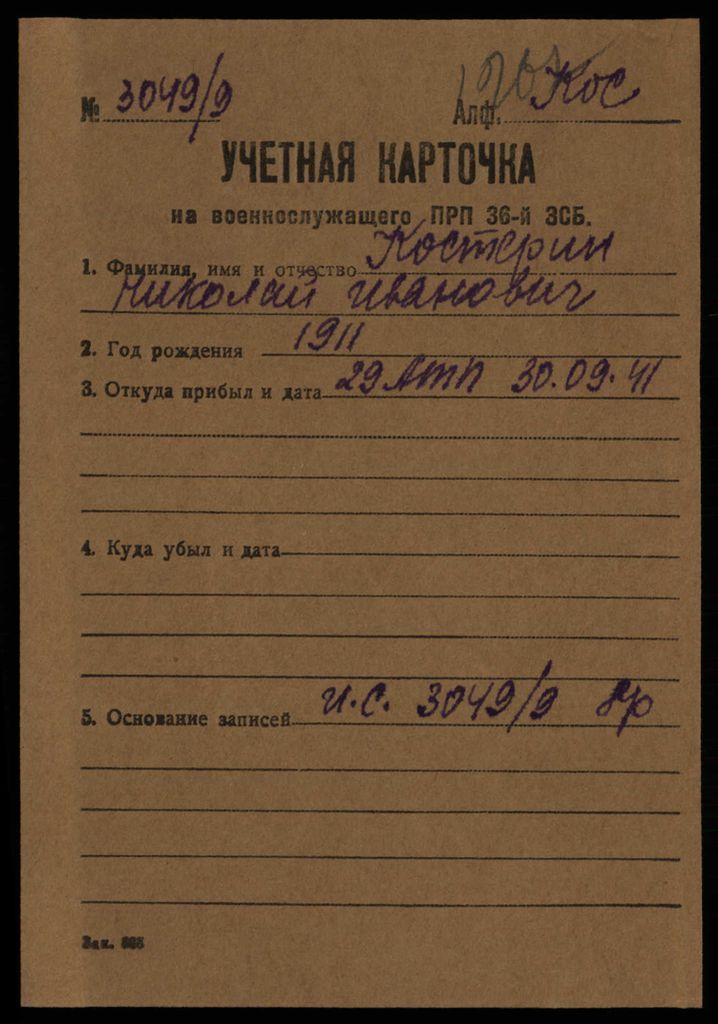 № 3049/9 Алф. Кос
УЧЕТНАЯ КАРТОЧКА
на военнослужащего ПРП 36-й ЗСБ.
1. Фамилия, имя и отчество Костерин
Николай Иванович
2. Год рождения 1911
3. Откуда прибыл и дата 29 АТП 30.09.41
4. Куда убыл и дата
5. Основание записей И.С. 3049/9
Зак.